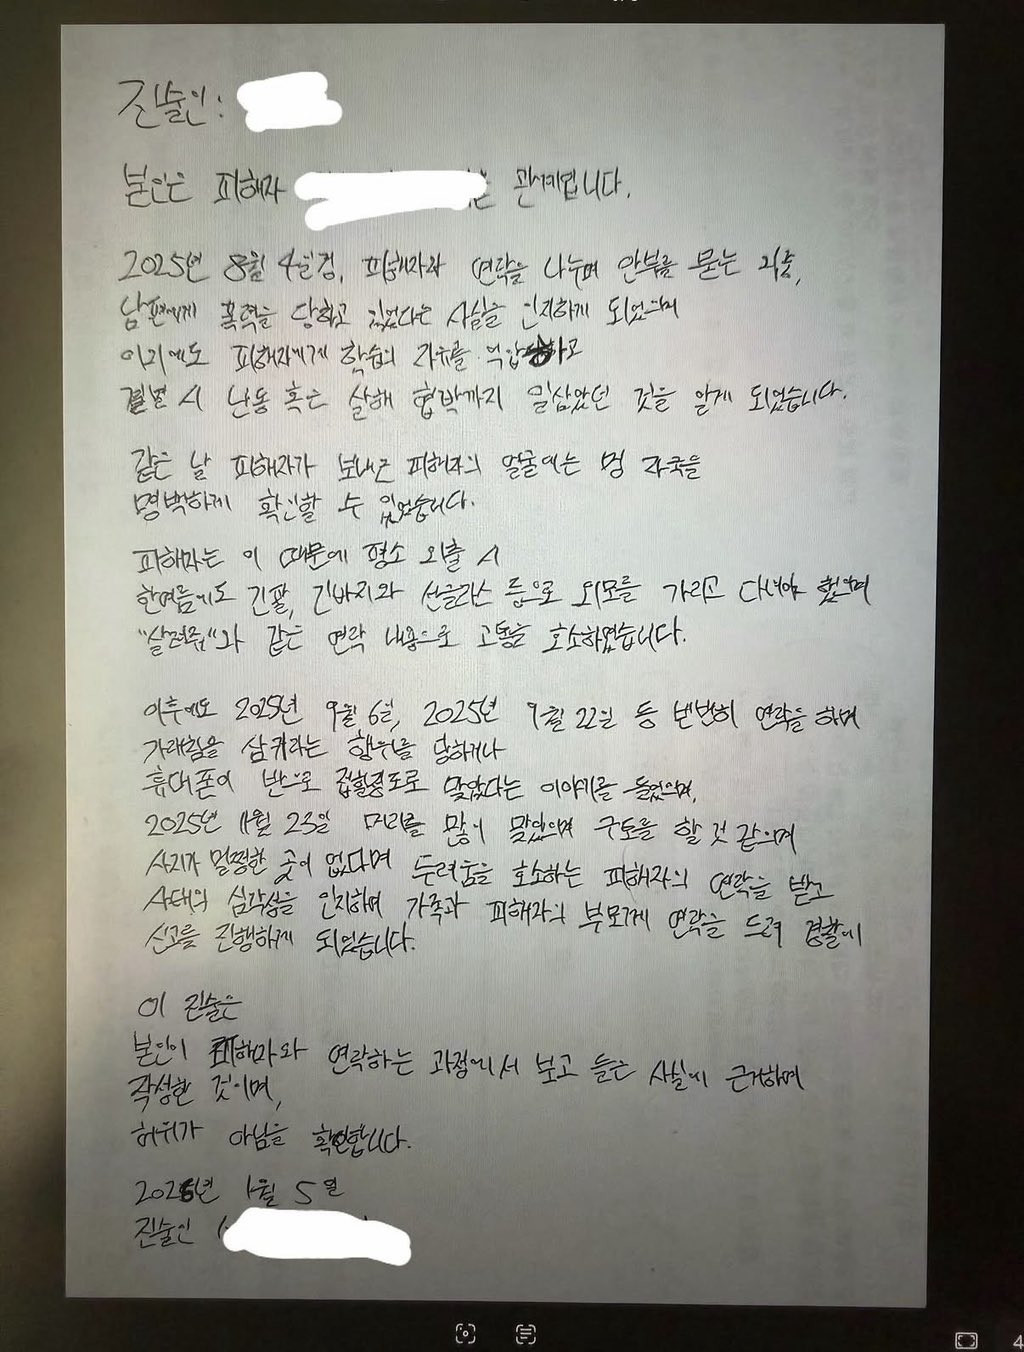 진술인:
본인은 피해자 관계입니다.
2025년 8월 4일경, 피해자와 연락을 나누며 안부를 묻는 와중,
남편에게 폭력을 당하고 있었다는 사실을 인지하게 되었으며
이외에도 피해자에게 학습의 자유를 억압하고
결별 시 난동 혹은 살해 협박까지 일삼았던 것을 알게 되었습니다.
같은 날 피해자가 보내준 피해자의 얼굴에는 멍 자국을
명백하게 확인할 수 있었습니다.
피해자는 이 때문에 평소 외출 시
한여름에도 긴팔, 긴바지와 선글라스 등으로 외모를 가리고 다녀야 했으며
"살려줘"와 같은 연락 내용으로 고통을 호소하였습니다.
이후에도 2025년 9월 6일, 2025년 9월 22일 등 빈번히 연락을 하며
가래침을 삼키라는 행위를 당하거나
휴대폰이 반으로 접힐정도로 맞았다는 이야기를 들었으며,
2025년 11월 23일 머리를 많이 맞았으며 구토를 할 것 같으며
사지가 멀쩡한 곳이 없다며 두려움을 호소하는 피해자의 연락을 받고
사태의 심각성을 인지하며 가족과 피해자의 부모께 연락을 드려 경찰에
신고를 진행하게 되었습니다.
이 진술은
본인이 피해자와 연락하는 과정에서 보고 들은 사실에 근거하며
작성한 것이며,
허위가 아님을 확인합니다.
2026년 1월 5일
진술인 (
4